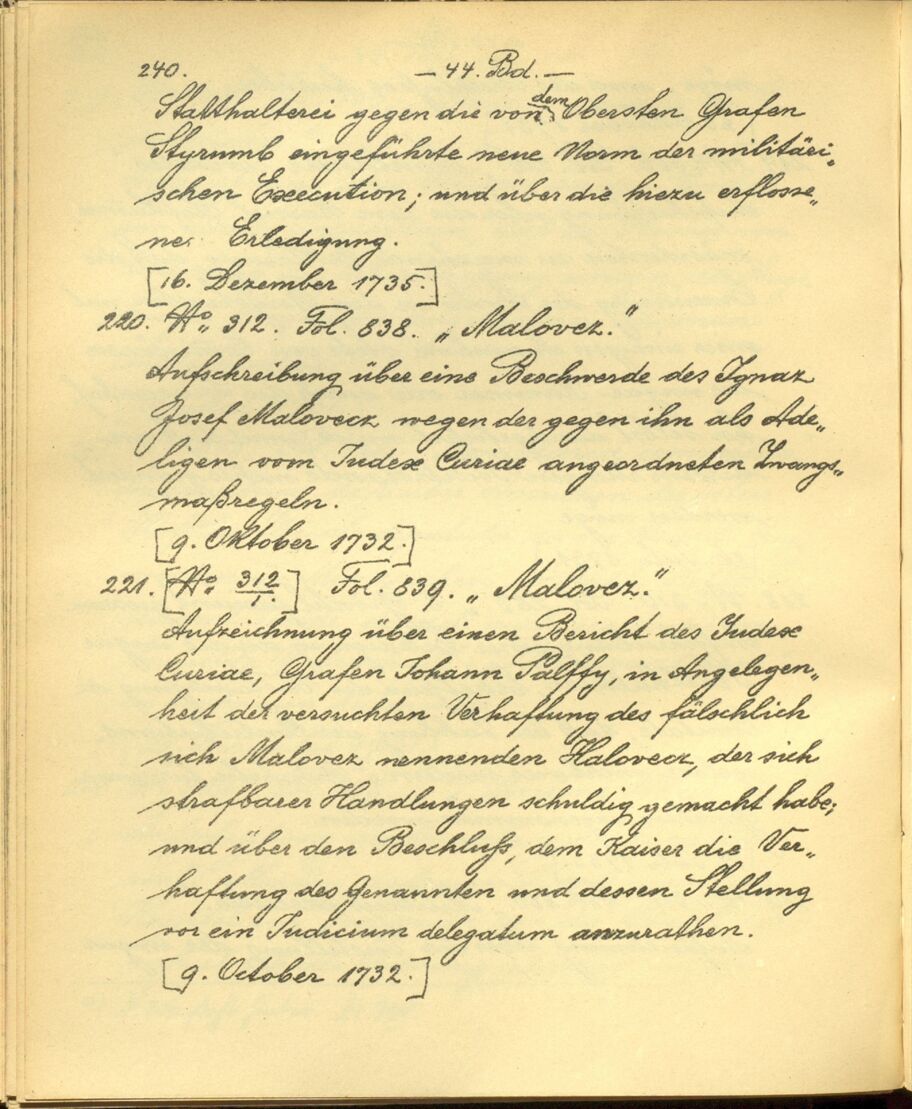 240. — 44. Bd. —
Statthalterei gegen die von dem Obersten Grafen
Styrumb eingeführte neue Norm der militäri„
schen Execution; und über die hiezu erflosse„
ne Erledigung.
[16. Dezember 1735.]
220. No. 312. Fol. 838. „Malovez.“
Aufschreibung über eine Beschwerde des Ignaz
Josef Malovecz wegen der gegen ihn als Ade„
ligen vom Iudex Curiae angeordneten Zwangs„
maßregeln.
[9. Oktober 1732.]
221. [No. 312/1.] Fol. 839. „Malovez.“
Aufzeichnung über einen Bericht des Iudex
Curiae, Grafen Johann Pálffy, in Angelegen„
heit der versuchten Verhaftung des fälschlich
sich Malovez nennenden Halovecz, der sich
strafbarer Handlungen schuldig gemacht habe;
und über den Beschluß, dem Kaiser die Ver„
haftung des Genannten und dessen Stellung
vor ein Iudicium delegatum anzurathen.
[9. October 1732.]